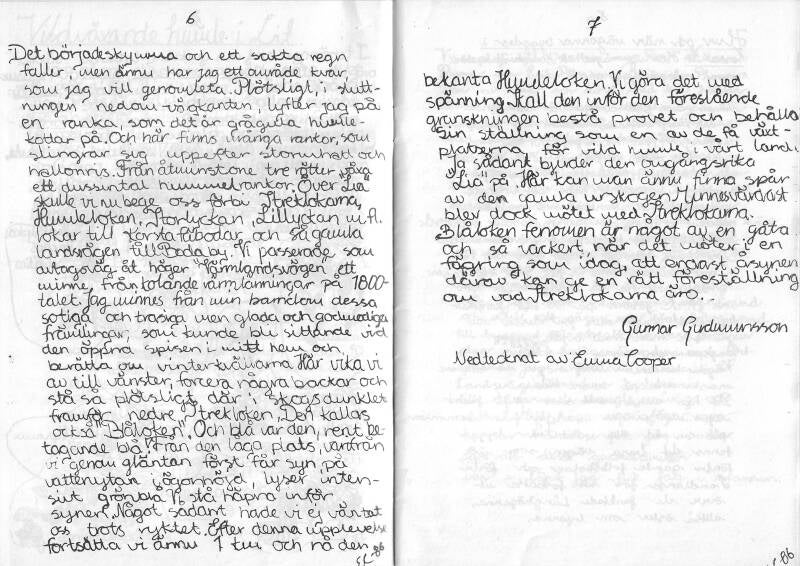 6
Det börjades skymma och ett sakta regn
faller, men ännu har jag ett område kvar,
som jag vill genomleta. Plötsligt, i slutt-
ningen nedom vägkanten, lyfter jag på
en ranka, som det är grågula humle-
kottar på. Och här finns många rankor, som
slingrar sig uppefter stormhatt och
hallonris. Från åtminstone tre rötter växa
ett dussintal hummelrankor. Över "Lia
skulle vi nu bege oss förbi Streklokarna,
Humleloken, Storlyckan, Lillyckan m.fl.
lokar till Torsta fäbodar, och så gamla
landsvägen till Boda by. Vi passerade som
avtagsväg åt höger Värmlandsvägen ett
minne, från kolande värmlänningar på 1800-
talet. Jag minnes från min barndom dessa
sotiga och trasiga men glada och godmodiga
främlingar, som kunde bli sittande vid
den öppna spisen i mitt hem och
berätta om vinterkvällarna. Här vika vi
av till vänster, forcera några backar och
stå så plötsligt där i skogsdunklet
framför nedre "Streloken. Den kallas
också "Blåloken". Och blå var den, rent be-
tagande blå. Från den låga plats, varifrån
vi genom gläntan först får syn på
vattenytan i ögonhöjd, lyser inten-
sivt grönblå. Vi stå häpna inför
synen. Något sådant hade vi ej väntat
oss trots ryktet. Efter denna upplevelse
fortsätta vi ännu 1 km. och nå den
-86
7
bekanta Humleloken. Vi göra det med
spänning. Skall den inför den föreslående
granskningen bestå provet och behålla
sin ställning som en av de få växt-
platserna för vild humle i vårt land.
Ja sådant bjuder den ougångsrika
"Lia" på. Här kan man ännu finna spår
av den gamla urskogen. Minnesvärdast
blev dock mötet med Streklokarna.
Blåloken fenomen är något av en gåta
och så vackert, när det möter i en
fägring som idag, att endast åsynen
därav kan ge en rätt föreställning
om vad Streklokarna äro...
Gunnar Gudmunsson
Nedtecknat av Emma Cooper
-86